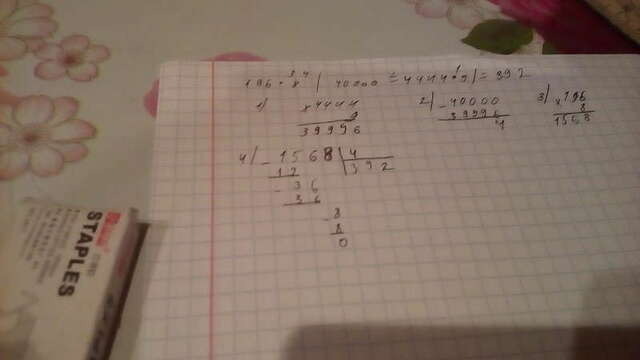 196 · 8 / (40000 - 4444 · 9) = 392
1) × 4444
9
39996
2) - 40000
39996
4
3) × 196
8
1568
4) - 1568 | 4
12 | 392
- 36
36
- 8
8
0
STAPLES